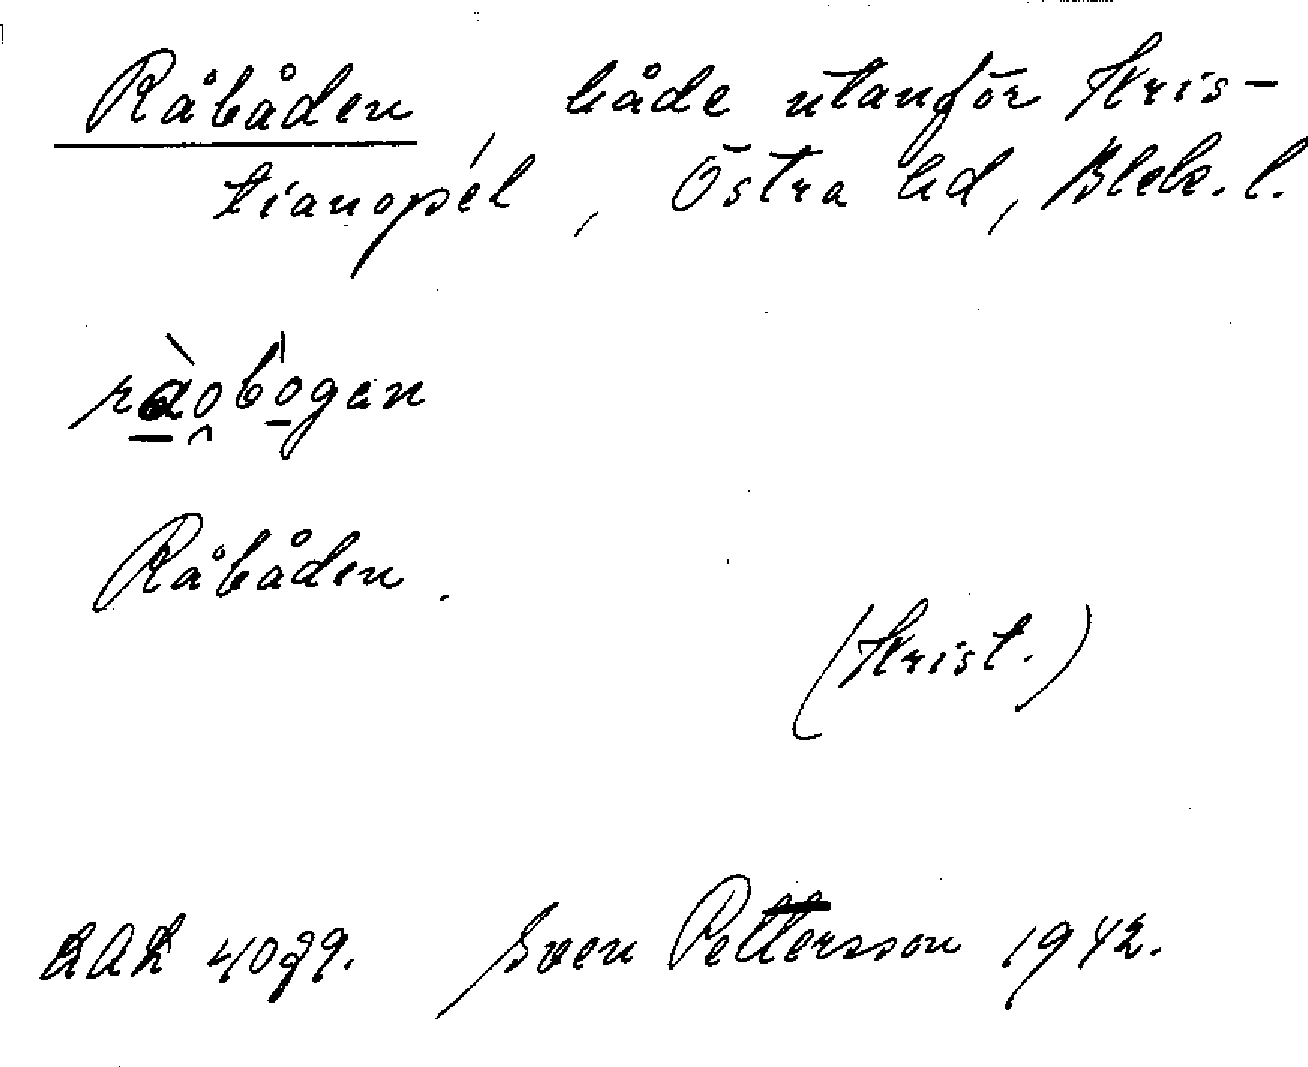 Råbåden, både utanför Kris-
tianopel, Östra hd,Blek. l.
ràobògen
Råbåden.
(Krist.)
RAK 4099. Sven Pettersson 1942.